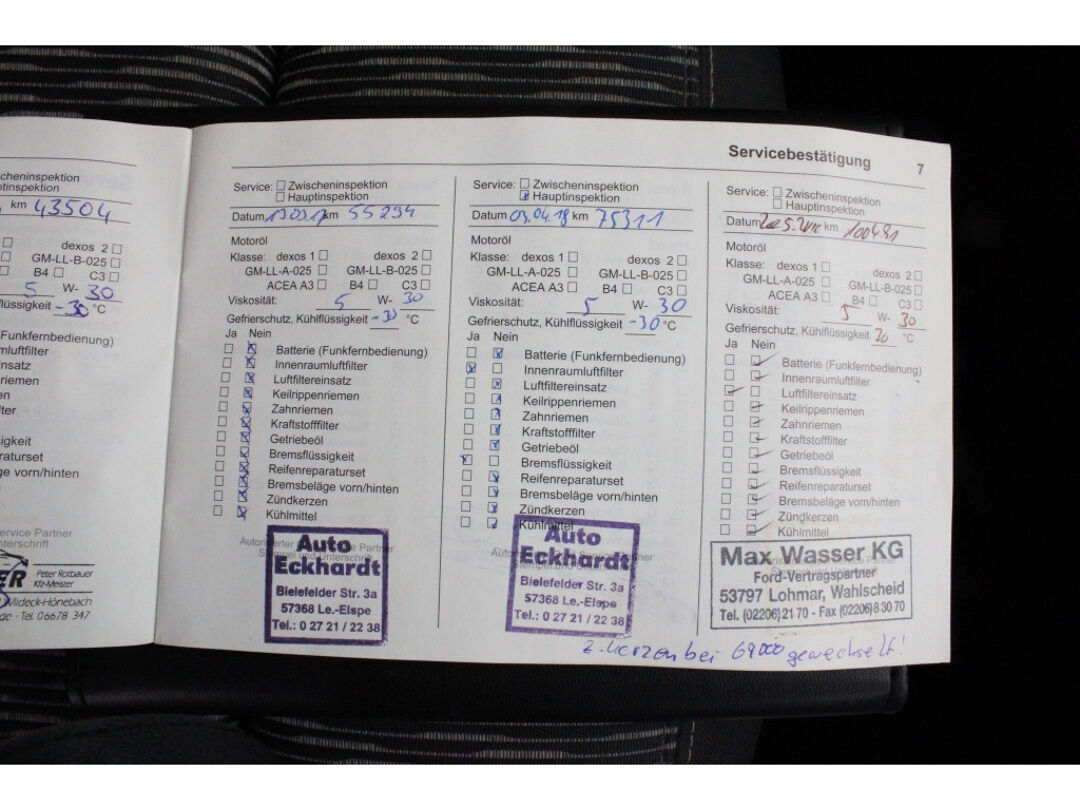 Servicebestätigung 7
cheninspektion
ptinspektion
km 43504
dexos 2
GM-LL-B-025
B4 C3
5 W- 30
lüssigkeit -30 °C
Funkfernbedienung)
mluftfilter
nsatz
riemen
en
ter
igkeit
raturset
ge vorn/hinten
ervice Partner
nterschrift
ER
Peter Rotbauer
Kfz-Meister
Wildeck-Hönebach
Tel 06678 347
Service: Zwischeninspektion
Hauptinspektion
Datum 13.03.17 km 55294
Motoröl
Klasse: dexos 1 dexos 2
GM-LL-A-025 GM-LL-B-025
ACEA A3 B4 C3
Viskosität: 5 W- 30
Gefrierschutz, Kühlflüssigkeit -30 °C
Ja Nein
Batterie (Funkfernbedienung)
Innenraumluftfilter
Luftfiltereinsatz
Keilrippenriemen
Zahnriemen
Kraftstofffilter
Getriebeöl
Bremsflüssigkeit
Reifenreparaturset
Bremsbeläge vorn/hinten
Zündkerzen
Kühlmittel
Autorisierter Service Partner
Stempel und Unterschrift
Auto
Eckhardt
Bielefelder Str. 3a
57368 Le.-Elspe
Tel.: 0 27 21 / 22 38
Service: Zwischeninspektion
x Hauptinspektion
Datum 03.04.18 km 75311
Motoröl
Klasse: dexos 1 dexos 2
GM-LL-A-025 GM-LL-B-025
ACEA A3 B4 C3
Viskosität: 5 W- 30
Gefrierschutz, Kühlflüssigkeit -30 °C
Ja Nein
Batterie (Funkfernbedienung)
Innenraumluftfilter
Luftfiltereinsatz
Keilrippenriemen
Zahnriemen
Kraftstofffilter
Getriebeöl
Bremsflüssigkeit
Reifenreparaturset
Bremsbeläge vorn/hinten
Zündkerzen
Kühlmittel
Service Partner
Stempel und
Auto
Eckhardt
Bielefelder Str. 3a
57368 Le.-Elspe
Tel.: 0 27 21 / 22 38
Service: Zwischeninspektion
Hauptinspektion
Datum km 100491
Motoröl
Klasse: dexos 1 dexos 2
GM-LL-A-025 GM-LL-B-025
ACEA A3 B4 C3
Viskosität: 5 W- 30
Gefrierschutz, Kühlflüssigkeit 30 °C
Ja Nein
Batterie (Funkfernbedienung)
Innenraumluftfilter
Luftfiltereinsatz
Keilrippenriemen
Zahnriemen
Kraftstofffilter
Getriebeöl
Bremsflüssigkeit
Reifenreparaturset
Bremsbeläge vorn/hinten
Zündkerzen
Kühlmittel
Max Wasser KG
Ford-Vertragspartner
53797 Lohmar, Wahlscheid
Tel. (02206) 21 70 - Fax (02206) 8 30 70
Z. Kerzen bei 69000 gewechselt!